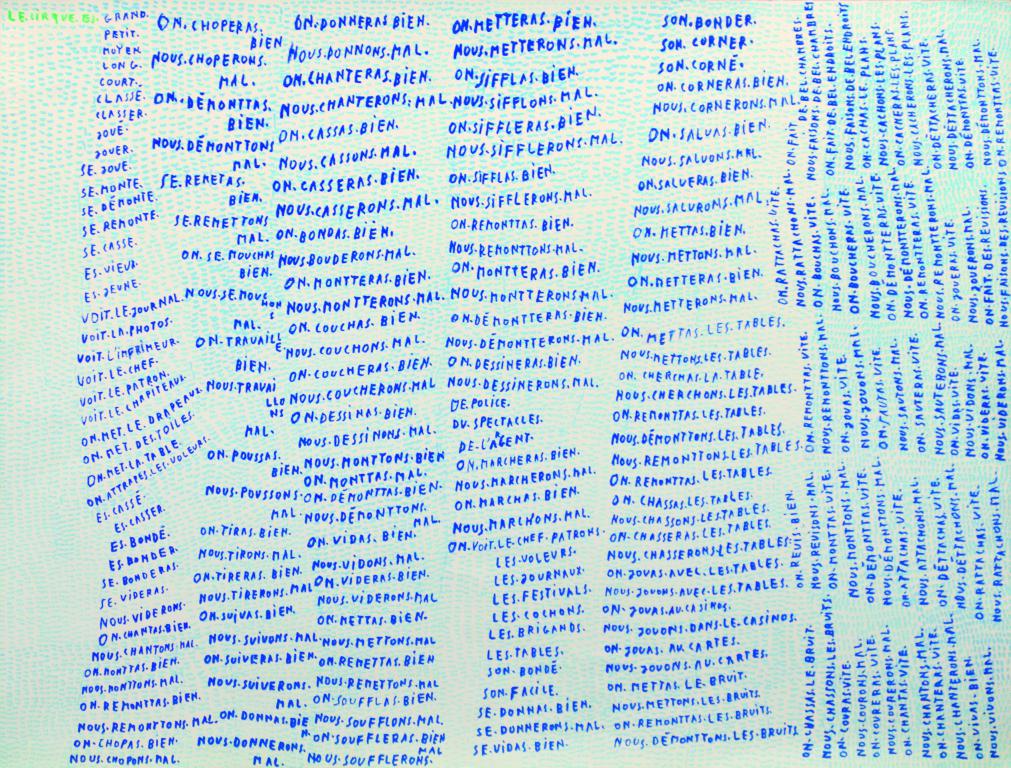 LE.CIRQUE.ES. GRAND.
PETIT.
MOYEN.
LONG.
COURT.
CLASSÉ.
CLASSER.
JOUÉ.
JOUER.
SE.JOUE.
SE.MONTE.
SE.DÉMONTE.
SE.REMONTE.
SE.CASSE.
ES.VIEUX.
ES.JEUNE.
VOIT.LE.JOURNAL.
VOIT.LA.PHOTOS.
VOIT.L'IMPRIMEUR.
VOIT.LE.CHEF.
VOIT.LE.PATRON.
VOIT.LE.CHAPITEAUX.
ON.MET.LE.DRAPEAUX.
ON.MET.DES.TOILES.
ON.MET.LA.TABLE.
ON.ATTRAPES.LES.VOLEURS.
ES.CASSÉ.
ES.CASSER.
ES.BONDÉ.
ES.BONDER.
SE.BONDERAS.
SE.VIDERAS.
NOUS.VIDERONS.
ON.CHANTAS.BIEN.
NOUS.CHANTONS.MAL.
ON.MONTTAS.BIEN.
NOUS.MONTTONS.MAL.
ON.REMONTTAS.BIEN.
NOUS.REMONTTONS.MAL.
ON.CHOPAS.BIEN.
NOUS.CHOPONS.MAL.
ON.CHOPERAS.
BIEN
NOUS.CHOPERONS.
MAL.
ON.DÉMONTTAS.
BIEN.
NOUS.DÉMONTTONS
MAL.
SE.REMETAS.
BIEN.
SE.REMETTONS
MAL.
ON.SE.MOUCHAS
BIEN.
NOUS.SE.MOUCHONS
MAL.
ON.TRAVAILLE
BIEN.
NOUS.TRAVAI
LLO
NS
MAL.
ON.POUSSAS.
BIEN.
NOUS.POUSSONS.
MAL.
ON.TIRAS.BIEN.
NOUS.TIRONS.MAL.
ON.TIRERAS.BIEN.
NOUS.TIRERONS.MAL.
ON.SUIVAS.BIEN.
NOUS.SUIVONS.MAL.
ON.SUIVERAS.BIEN.
NOUS.SUIVERONS.
MAL.
ON.DONNAS.BIEN
NOUS.DONNERONS.
MAL.
ON.DONNERAS.BIEN.
NOUS.DONNONS.MAL.
ON.CHANTERAS.BIEN.
NOUS.CHANTERONS.MAL.
ON.CASSAS.BIEN.
NOUS.CASSONS.MAL.
ON.CASSERAS.BIEN.
NOUS.CASSERONS.MAL.
ON.BONDAS.BIEN.
NOUS.BOUDERONS.MAL.
ON.MONTTERAS.BIEN.
NOUS.MONTTERONS.MAL.
ON.COUCHAS.BIEN.
NOUS.COUCHONS.MAL.
ON.COUCHERAS.BIEN.
NOUS.COUCHERONS.MAL.
ON.DESSINAS.BIEN.
NOUS.DESSINONS.MAL.
NOUS.MONTTONS.BIEN
ON.MONTTAS.MAL.
ON.DÉMONTTAS.BIEN.
NOUS.DÉMONTTONS.
MAL.
ON.VIDAS.BIEN.
NOUS.VIDONS.MAL.
ON.VIDERAS.BIEN.
NOUS.VIDERONS.MAL
ON.METTAS.BIEN.
NOUS.METTONS.MAL
ON.REMETTAS.BIEN
NOUS.REMETTONS.MAL
ON.SOUFFLAS.BIEN.
NOUS.SOUFFLONS.MAL.
ON.SOUFFLERAS.BIEN
MAL
NOUS.SOUFFLERONS.
ON.METTERAS.BIEN.
NOUS.METTERONS.MAL.
ON.SIFFLAS.BIEN.
NOUS.SIFFLONS.MAL.
ON.SIFFLERAS.BIEN.
NOUS.SIFFLERONS.MAL.
ON.SIFFLAS.BIEN.
NOUS.SIFFLERONS.MAL.
ON.REMONTTAS.BIEN.
NOUS.REMONTTONS.MAL.
ON.MONTTERAS.BIEN.
NOUS.MONTTERONS.MAL.
ON.DÉMONTTERAS.BIEN.
NOUS.DÉMONTTERONS.MAL.
ON.DESSINERAS.BIEN.
NOUS.DESSINERONS.MAL.
DE.POLICE.
DU.SPECTACLES.
DE.L'AGENT.
ON.MARCHERAS.BIEN.
NOUS.MARCHERONS.MAL.
ON.MARCHAS.BIEN.
NOUS.MARCHONS.MAL.
ON.VOIT.LE.CHEF.PATRONS.
LES.VOLEURS.
LES.JOURNAUX.
LES.FESTIVALS.
LES.COCHONS.
LES.BRIGANDS.
LES.TABLES.
SON.BONDÉ.
SON.FACILE.
SE.DONNAS.BIEN.
SE.DONNERONS.MAL.
SE.VIDAS.BIEN.
SON.BONDER.
SON.CORNER.
SON.CORNÉ.
ON.CORNERAS.BIEN.
NOUS.CORNERONS.MAL.
ON.SALUAS.BIEN.
NOUS.SALUONS.MAL.
ON.SALUERAS.BIEN.
NOUS.SALURONS.MAL.
ON.METTAS.BIEN.
NOUS.METTONS.MAL.
ON.METTERAS.BIEN.
NOUS.METTERONS.MAL.
ON.METTAS.LES.TABLES.
NOUS.METTONS.LES.TABLES.
ON.CHERCHAS.LA.TABLE.
NOUS.CHERCHONS.LES.TABLES.
ON.REMONTTAS.LES.TABLES.
NOUS.DÉMONTTONS.LES.TABLES.
NOUS.REMONTTONS.LES.TABLES.
ON.REMONTTAS.LES.TABLES.
ON.CHASSAS.LES.TABLES.
NOUS.CHASSONS.LES.TABLES.
ON.CHASSERAS.LES.TABLES.
NOUS.CHASSERONS.LES.TABLES.
ON.JOUAS.AVEC.LES.TABLES.
NOUS.JOUONS.AVEC.LES.TABLES.
ON.JOUAS.AU.CASINOS.
NOUS.JOUONS.DANS.LE.CASINOS.
ON.JOUAS.AU.CARTES.
NOUS.JOUONS.AU.CARTES.
ON.METTAS.LE.BRUIT.
NOUS.METTONS.LES.BRUITS.
ON.REMONTTAS.LES.BRUITS.
NOUS.DÉMONTTONS.LES.BRUITS
ON.CHASSAS.LE.BRUIT.
NOUS.CHASSONS.LES.BRUITS.
ON.COURAS.VITE.
NOUS.COURONS.MAL.
ON.COURERAS.VITE.
NOUS.COURERONS.MAL.
ON.CHANTAS.VITE.
NOUS.CHANTONS.MAL.
ON.CHANTERAS.VITE.
NOUS.CHANTERONS.MAL.
ON.VIVAS.BIEN.
NOUS.VIVONS.MAL.
ON.REVIS.BIEN.
NOUS.REVISONS.MAL.
ON.MONTTAS.VITE.
NOUS.MONTTONS.MAL.
ON.DÉMONTTAS.VITE.
NOUS.DÉMONTTONS.MAL.
ON.ATTACHAS.VITE.
NOUS.ATTACHONS.MAL.
ON.DÉTTACHAS.VITE.
NOUS.DÉTTACHONS.MAL.
ON.RATTACHAS.VITE.
NOUS.RATTACHONS.MAL.
ON.REMONTTAS.VITE.
NOUS.REMONTTONS.MAL.
ON.JOUAS.VITE.
NOUS.JOUONS.MAL.
ON.SAUTAS.VITE.
NOUS.SAUTONS.MAL.
ON.SAUTERAS.VITE.
NOUS.SAUTERONS.MAL.
ON.VIDAS.VITE.
NOUS.VIDONS.MAL.
ON.VIDERAS.VITE.
NOUS.VIDERONS.MAL.
ON.RATTACHAS.VITE.
NOUS.RATTACHONS.MAL.
ON.BOUCHAS.VITE.
NOUS.BOUCHONS.MAL.
ON.BOUCHERAS.VITE.
NOUS.BOUCHERONS.MAL.
ON.DÉMONTERAS.VITE.
NOUS.DÉMONTTERONS.MAL.
ON.REMONTERAS.VITE.
NOUS.REMONTTERONS.MAL.
ON.JOUERAS.VITE.
NOUS.JOUERONS.MAL.
ON.FAIT.DES.RÉVISION.
NOUS.FAISONS.DES.REVISIONS
ON.FAIT.
DE.BEL.CHAMBRES
NOUS.FAISONS.DE.BEL.CHAMBRES
ON.FAIT.DE.BEL.ENDROITS.
NOUS.FAISONS.DE.BEL.ENDROITS
ON.CACHAS.LE.PLANS.
NOUS.CACHONS.LES.PLANS.
ON.CACHERAS.LES.PLANS.
NOUS.CACHERONS.LES.PLANS.
ON.DÉTTACHERAS.VITE.
NOUS.DETTACHERONS.MAL.
ON.DÉMONTTAS.VITE.
NOUS.DÉMONTTONS.MAL.
ON.REMONTTAS.VITE